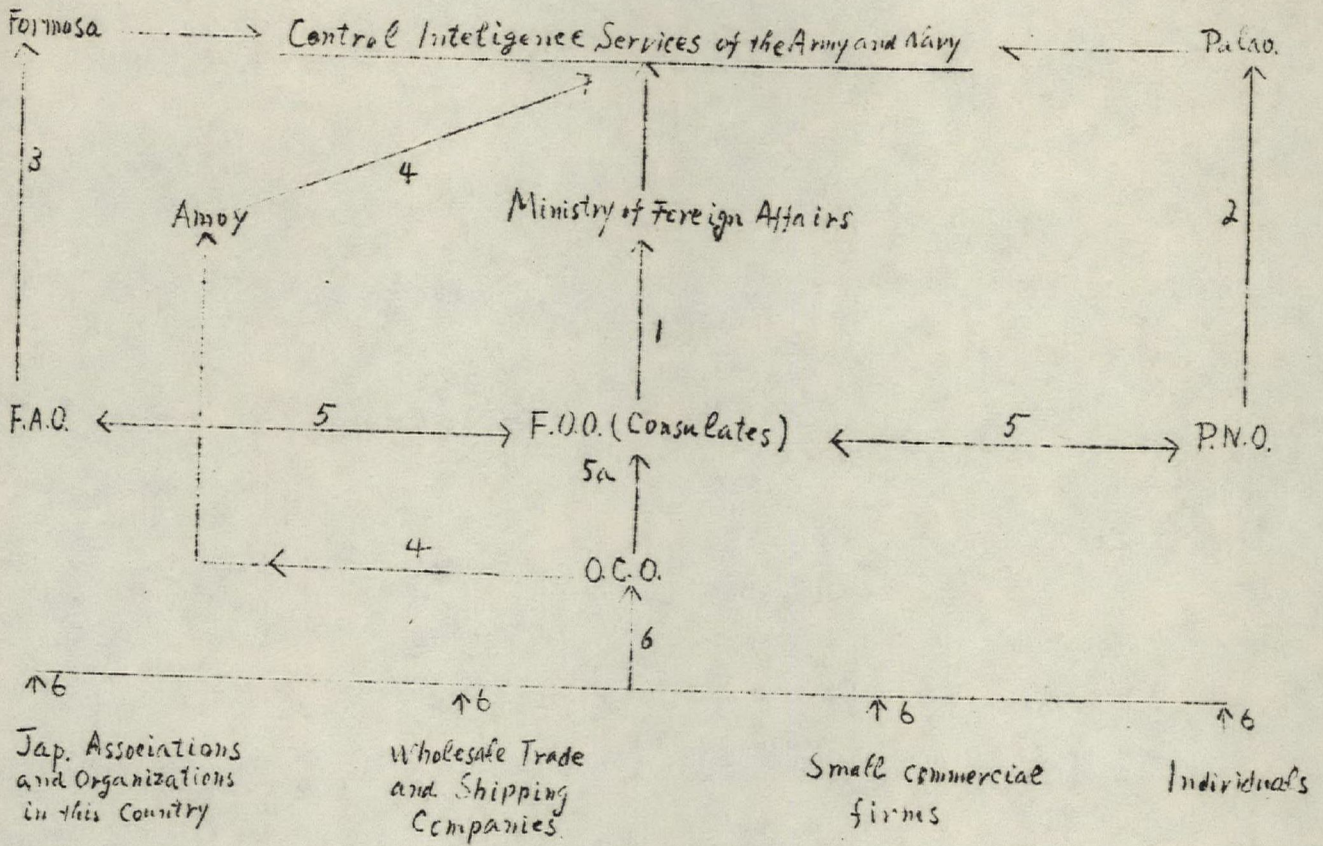 Formosa Central Inteligence Services of the Army and Navy Palao.
3
4
Amoy Ministry of Foreign Affairs 2
1
F.A.O. 5 F.O.O. (Consulates) 5 P.N.O.
5a
4 O.C.O.
6
6 6 6 6
Jap. Associations
and Organizations
in this Country
Wholesale Trade
and Shipping
Companies
Small commercial
firms
Individuals